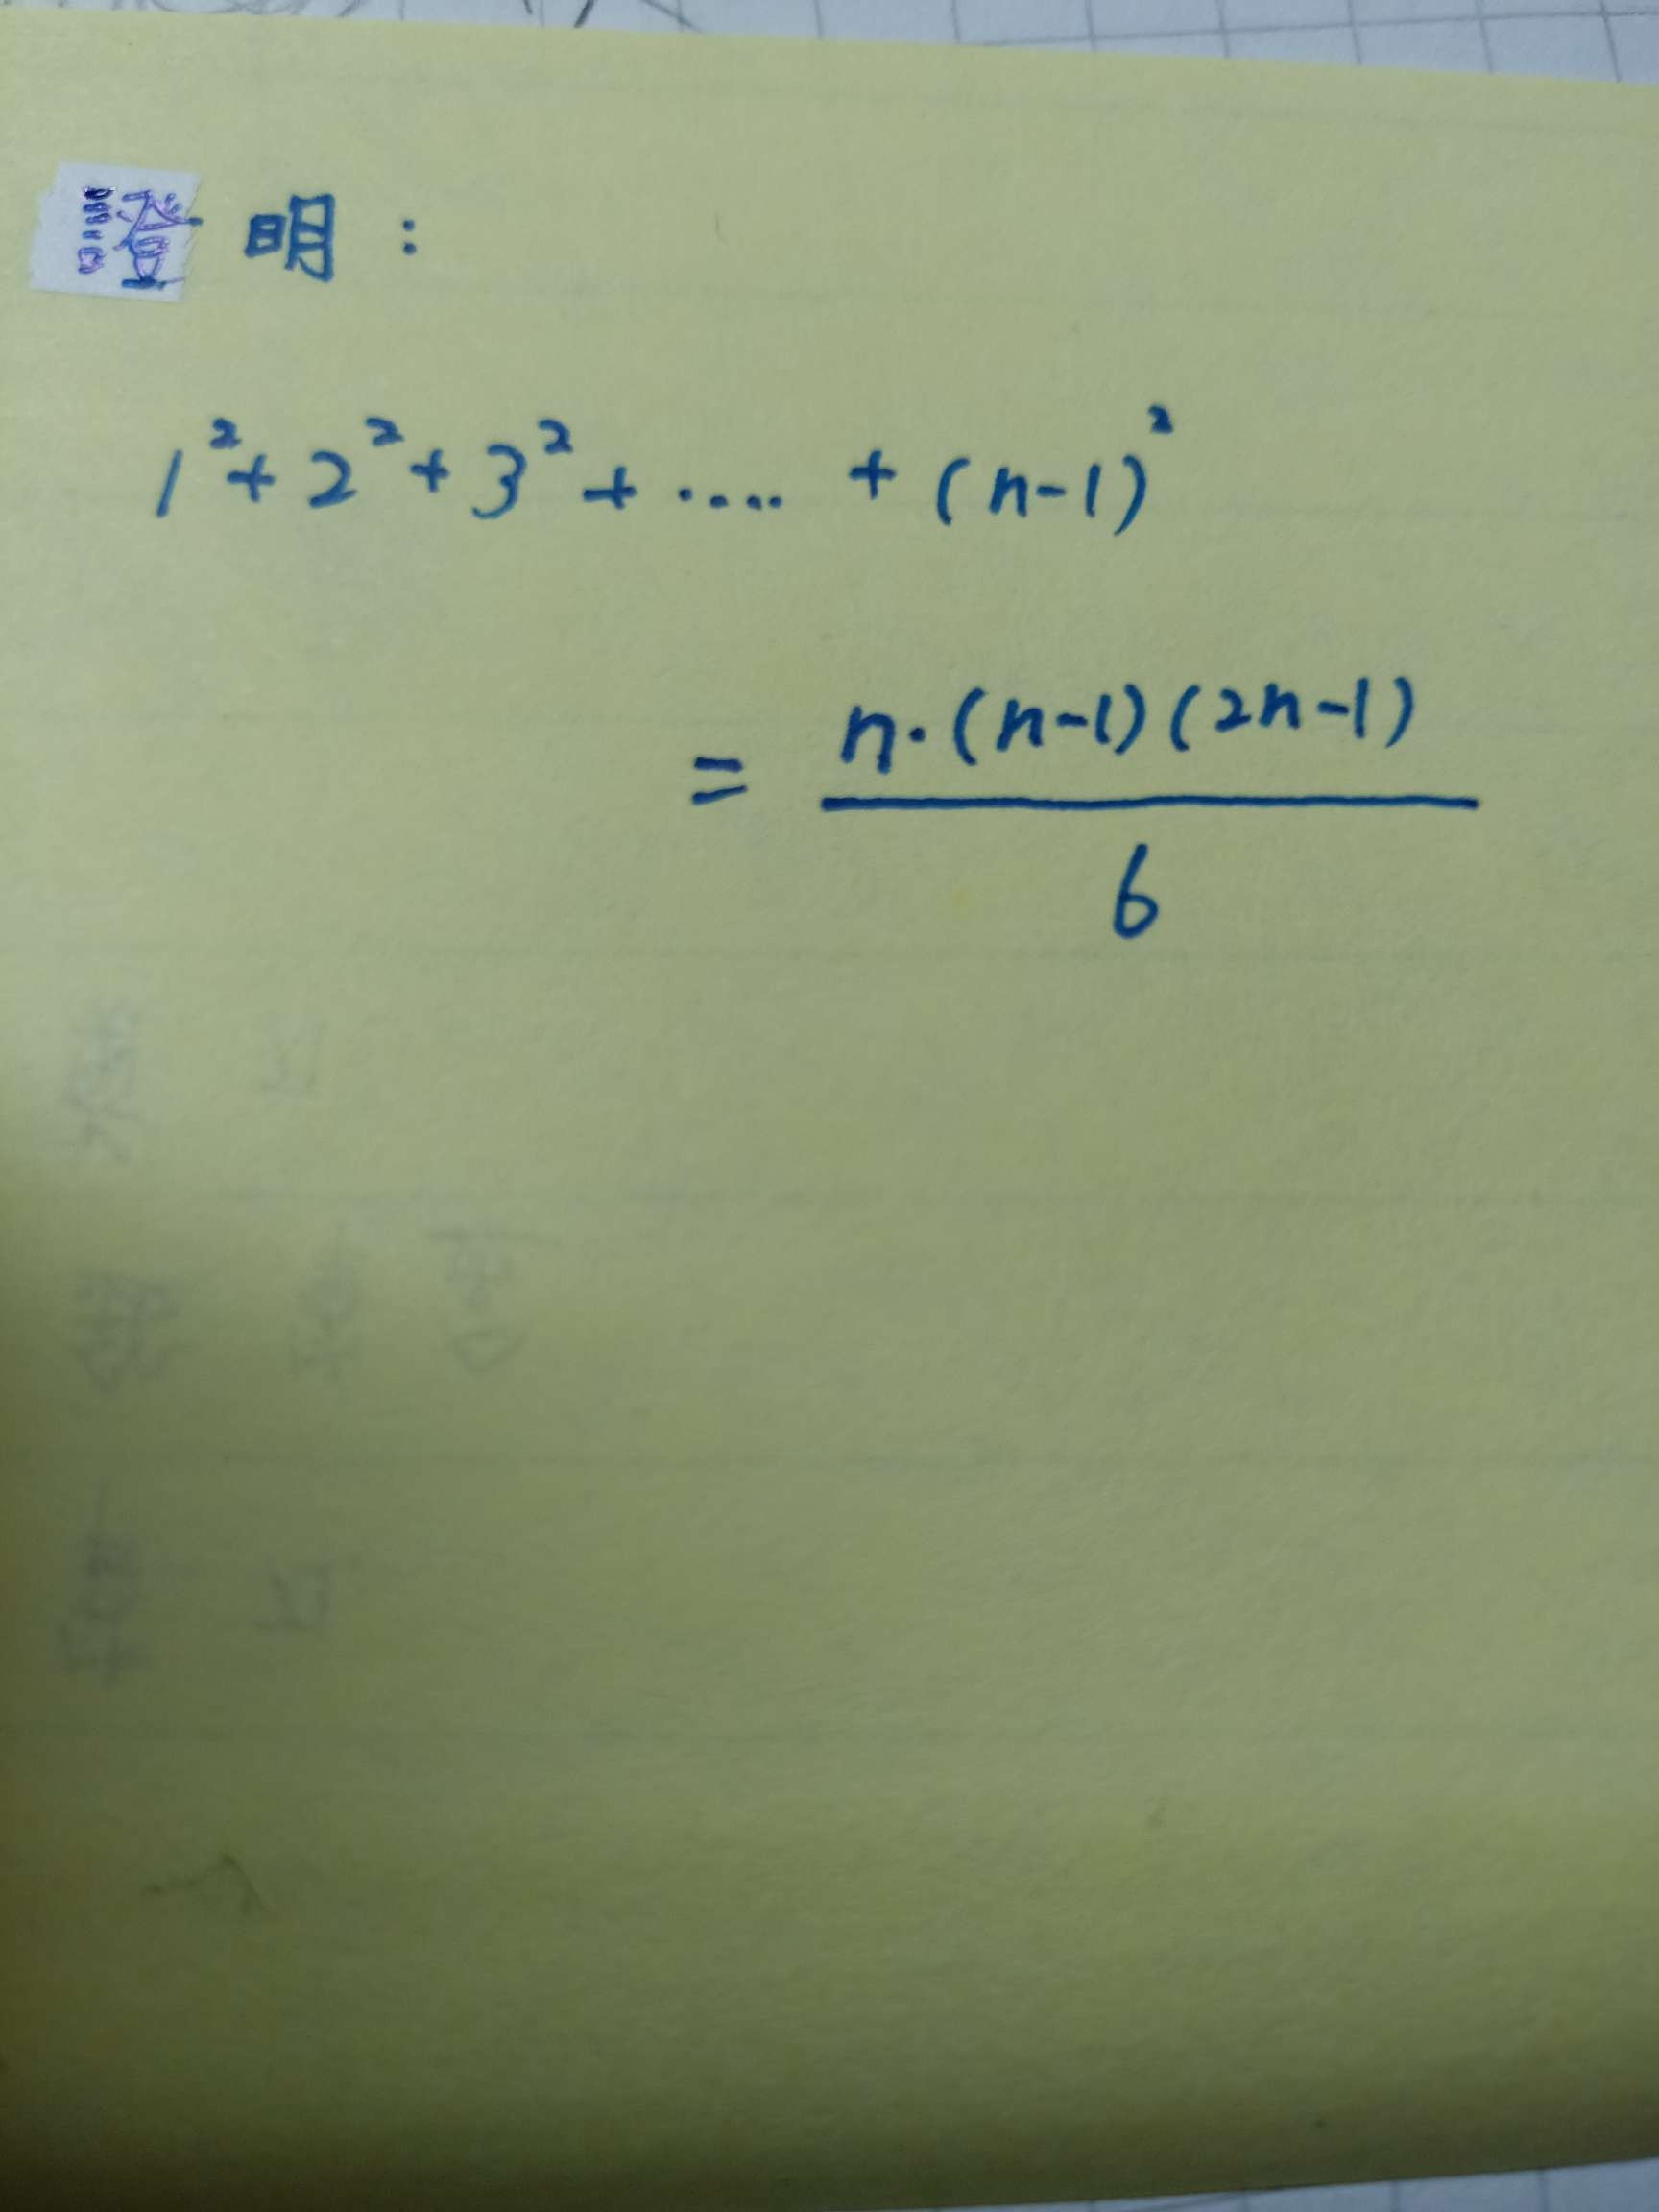 證明：
1²+2²+3²+····+(n-1)²
= n·(n-1)(2n-1)
6